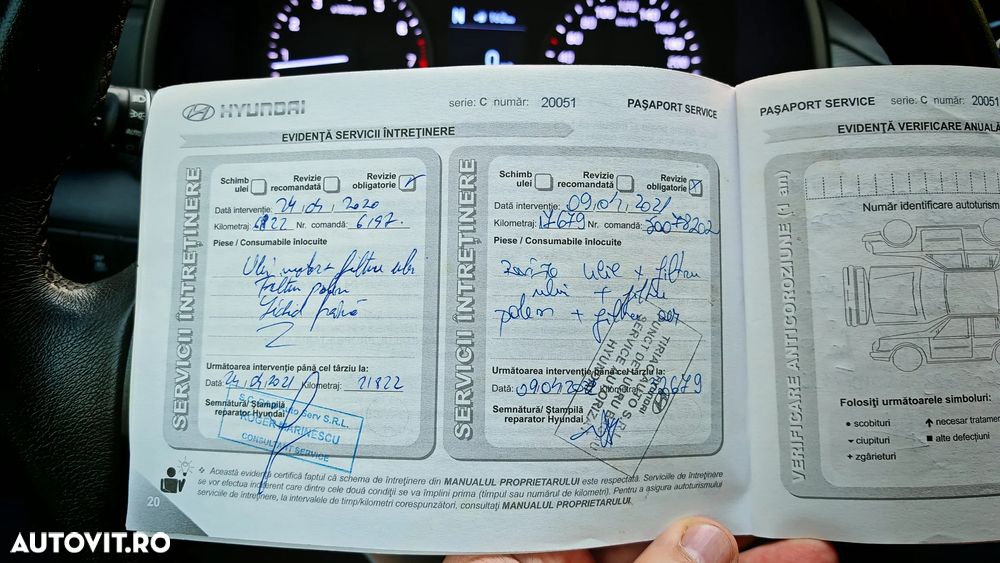 HYUNDAI
serie: C număr: 20051
PAȘAPORT SERVICE
EVIDENȚĂ SERVICII ÎNTREȚINERE
SERVICII ÎNTREȚINERE
Schimb ulei
Revizie recomandată
Revizie obligatorie
Dată intervenție: 24.04.2020
Kilometraj: 6822 Nr. comandă: 6197.
Piese / Consumabile înlocuite
Ulei motor + filtru ulei
Filtru polen
Lichid frână
Următoarea intervenție până cel târziu la:
Dată: 24.04.2021 Kilometraj: 21822
Semnătură/ Ștampilă
reparator Hyundai
ROGER MARINESCU
CONSULTANT SERVICE
SERVICII ÎNTREȚINERE
Schimb ulei
Revizie recomandată
Revizie obligatorie
Dată intervenție: 09.04.2021
Kilometraj: 17679 Nr. comandă: 30078202
Piese / Consumabile înlocuite
Revizie ulei + filtru
ulei + filtru
polen + filtru aer
Următoarea intervenție până cel târziu la:
Dată: 09.04.2022
Semnătură/ Ștampilă
reparator Hyundai
TIRIAC AUTO S.R.L.
PUNCT DE LUCRU
SERVICE AUTORIZAT
HYUNDAI
Această evidență certifică faptul că schema de întreținere din MANUALUL PROPRIETARULUI este respectată. Serviciile de întreținere
se vor efectua indiferent care dintre cele două condiții se va împlini prima (timpul sau numărul de kilometri). Pentru a asigura autoturismului
serviciile de întreținere, la intervalele de timp/kilometri corespunzători, consultați MANUALUL PROPRIETARULUI.
20
PAȘAPORT SERVICE
serie: C număr: 20051
EVIDENȚĂ VERIFICARE ANUALĂ
VERIFICARE ANTICOROZIUNE (1 an)
Număr identificare autoturism
Folosiți următoarele simboluri:
scobituri
necesar tratament
ciupituri
alte defecțiuni
zgârieturi
AUTOVIT.RO